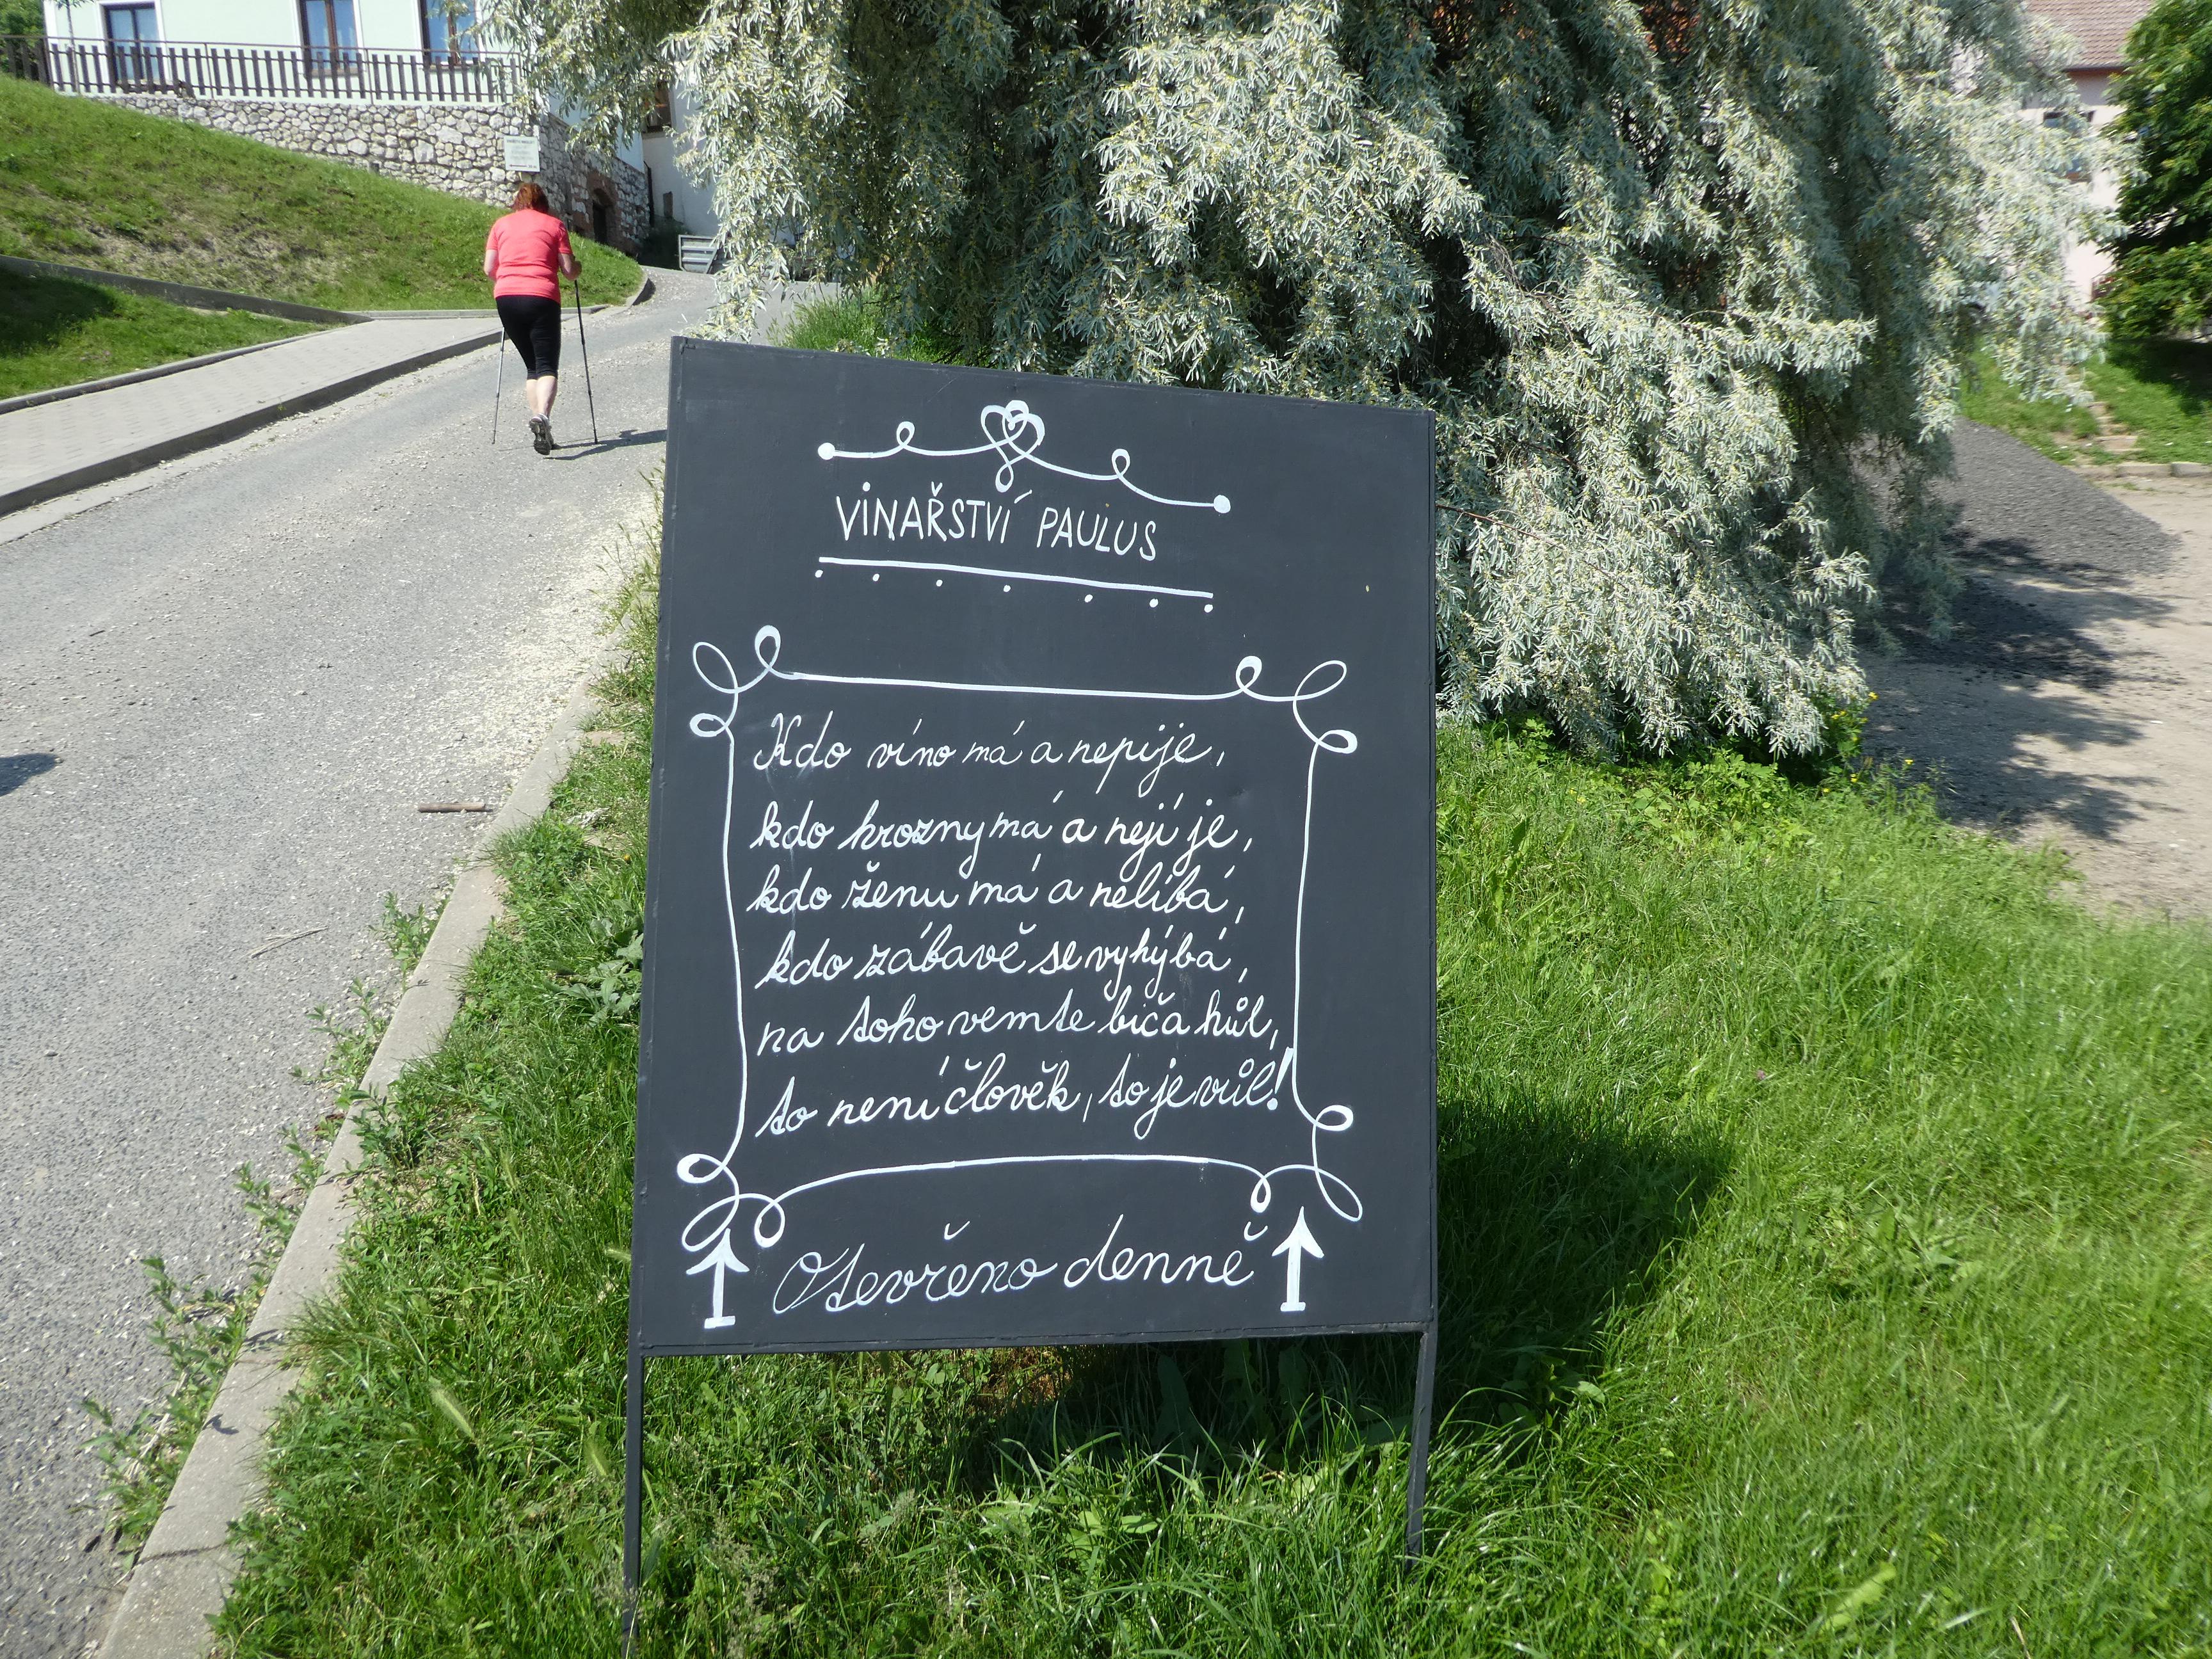 VINAŘSTVÍ PAULUS
Kdo víno má a nepije,
kdo hrozny má a nejí je,
kdo ženu má a nelíbá,
kdo zábavě se vyhýbá,
na toho vemte bič a hůl,
to není člověk, to je vůl!
Otevřeno denně